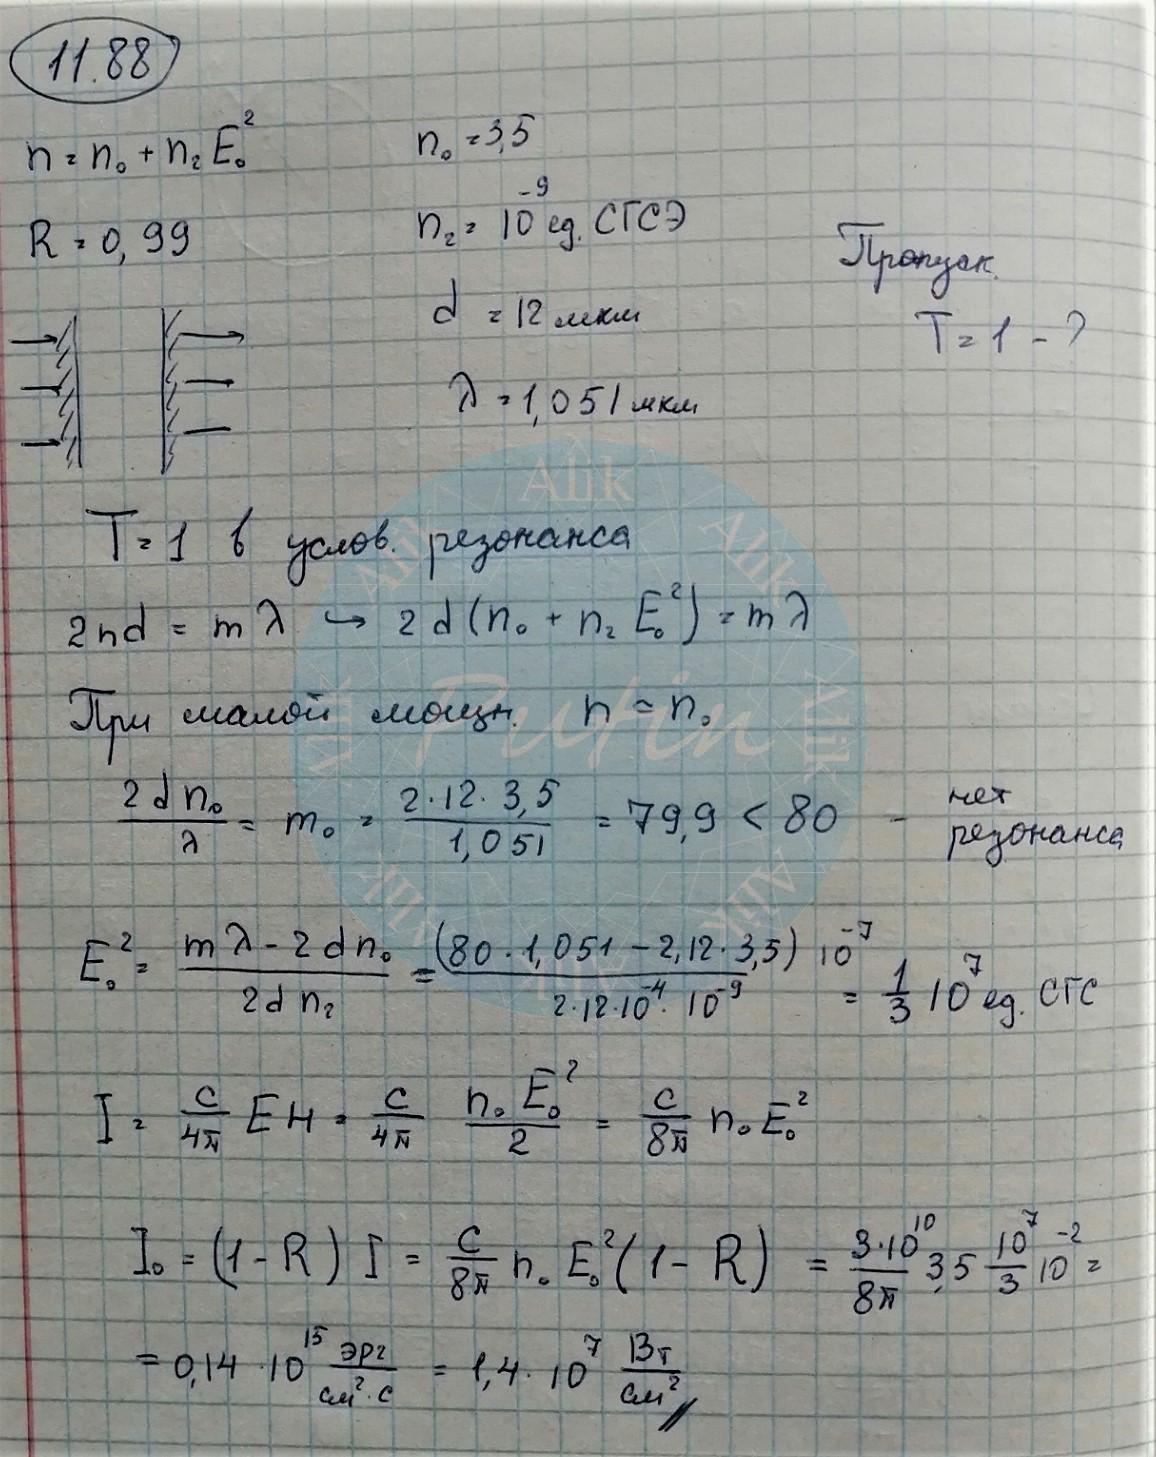 11.88
n = n₀ + n₂ E₀²
n₀ = 3,5
R = 0,99
n₂ = 10⁻⁹ ед. СГСЭ
Пропуск.
d = 12 мкм
T = 1 - ?
λ = 1,051 мкм
T = 1 в услов. резонанса
2nd = mλ ↪ 2d(n₀ + n₂ E₀²) = mλ
При малой мощн. n = n₀
2dn₀/λ = m₀ = 2·12·3,5/1,051 = 79,9 < 80 - нет резонанса
E₀² = (mλ - 2dn₀)/(2dn₂) = (80·1,051 - 2,12·3,5) 10⁻⁷/(2·12·10⁻⁴·10⁻⁹) = 1/3 10⁷ ед. СГС
I = c/4π EH = c/4π n₀E₀²/2 = c/8π n₀E₀²
I₀ = (1-R) I = c/8π n₀ E₀² (1-R) = 3·10¹⁰/8π 3,5 10⁷/3 10⁻² =
= 0,14·10¹⁵ эрг/см²·с = 1,4·10⁷ Вт/см²
Alik
Alik
Alik
Alik
Alik
Alik
Alik
Alik
Putin